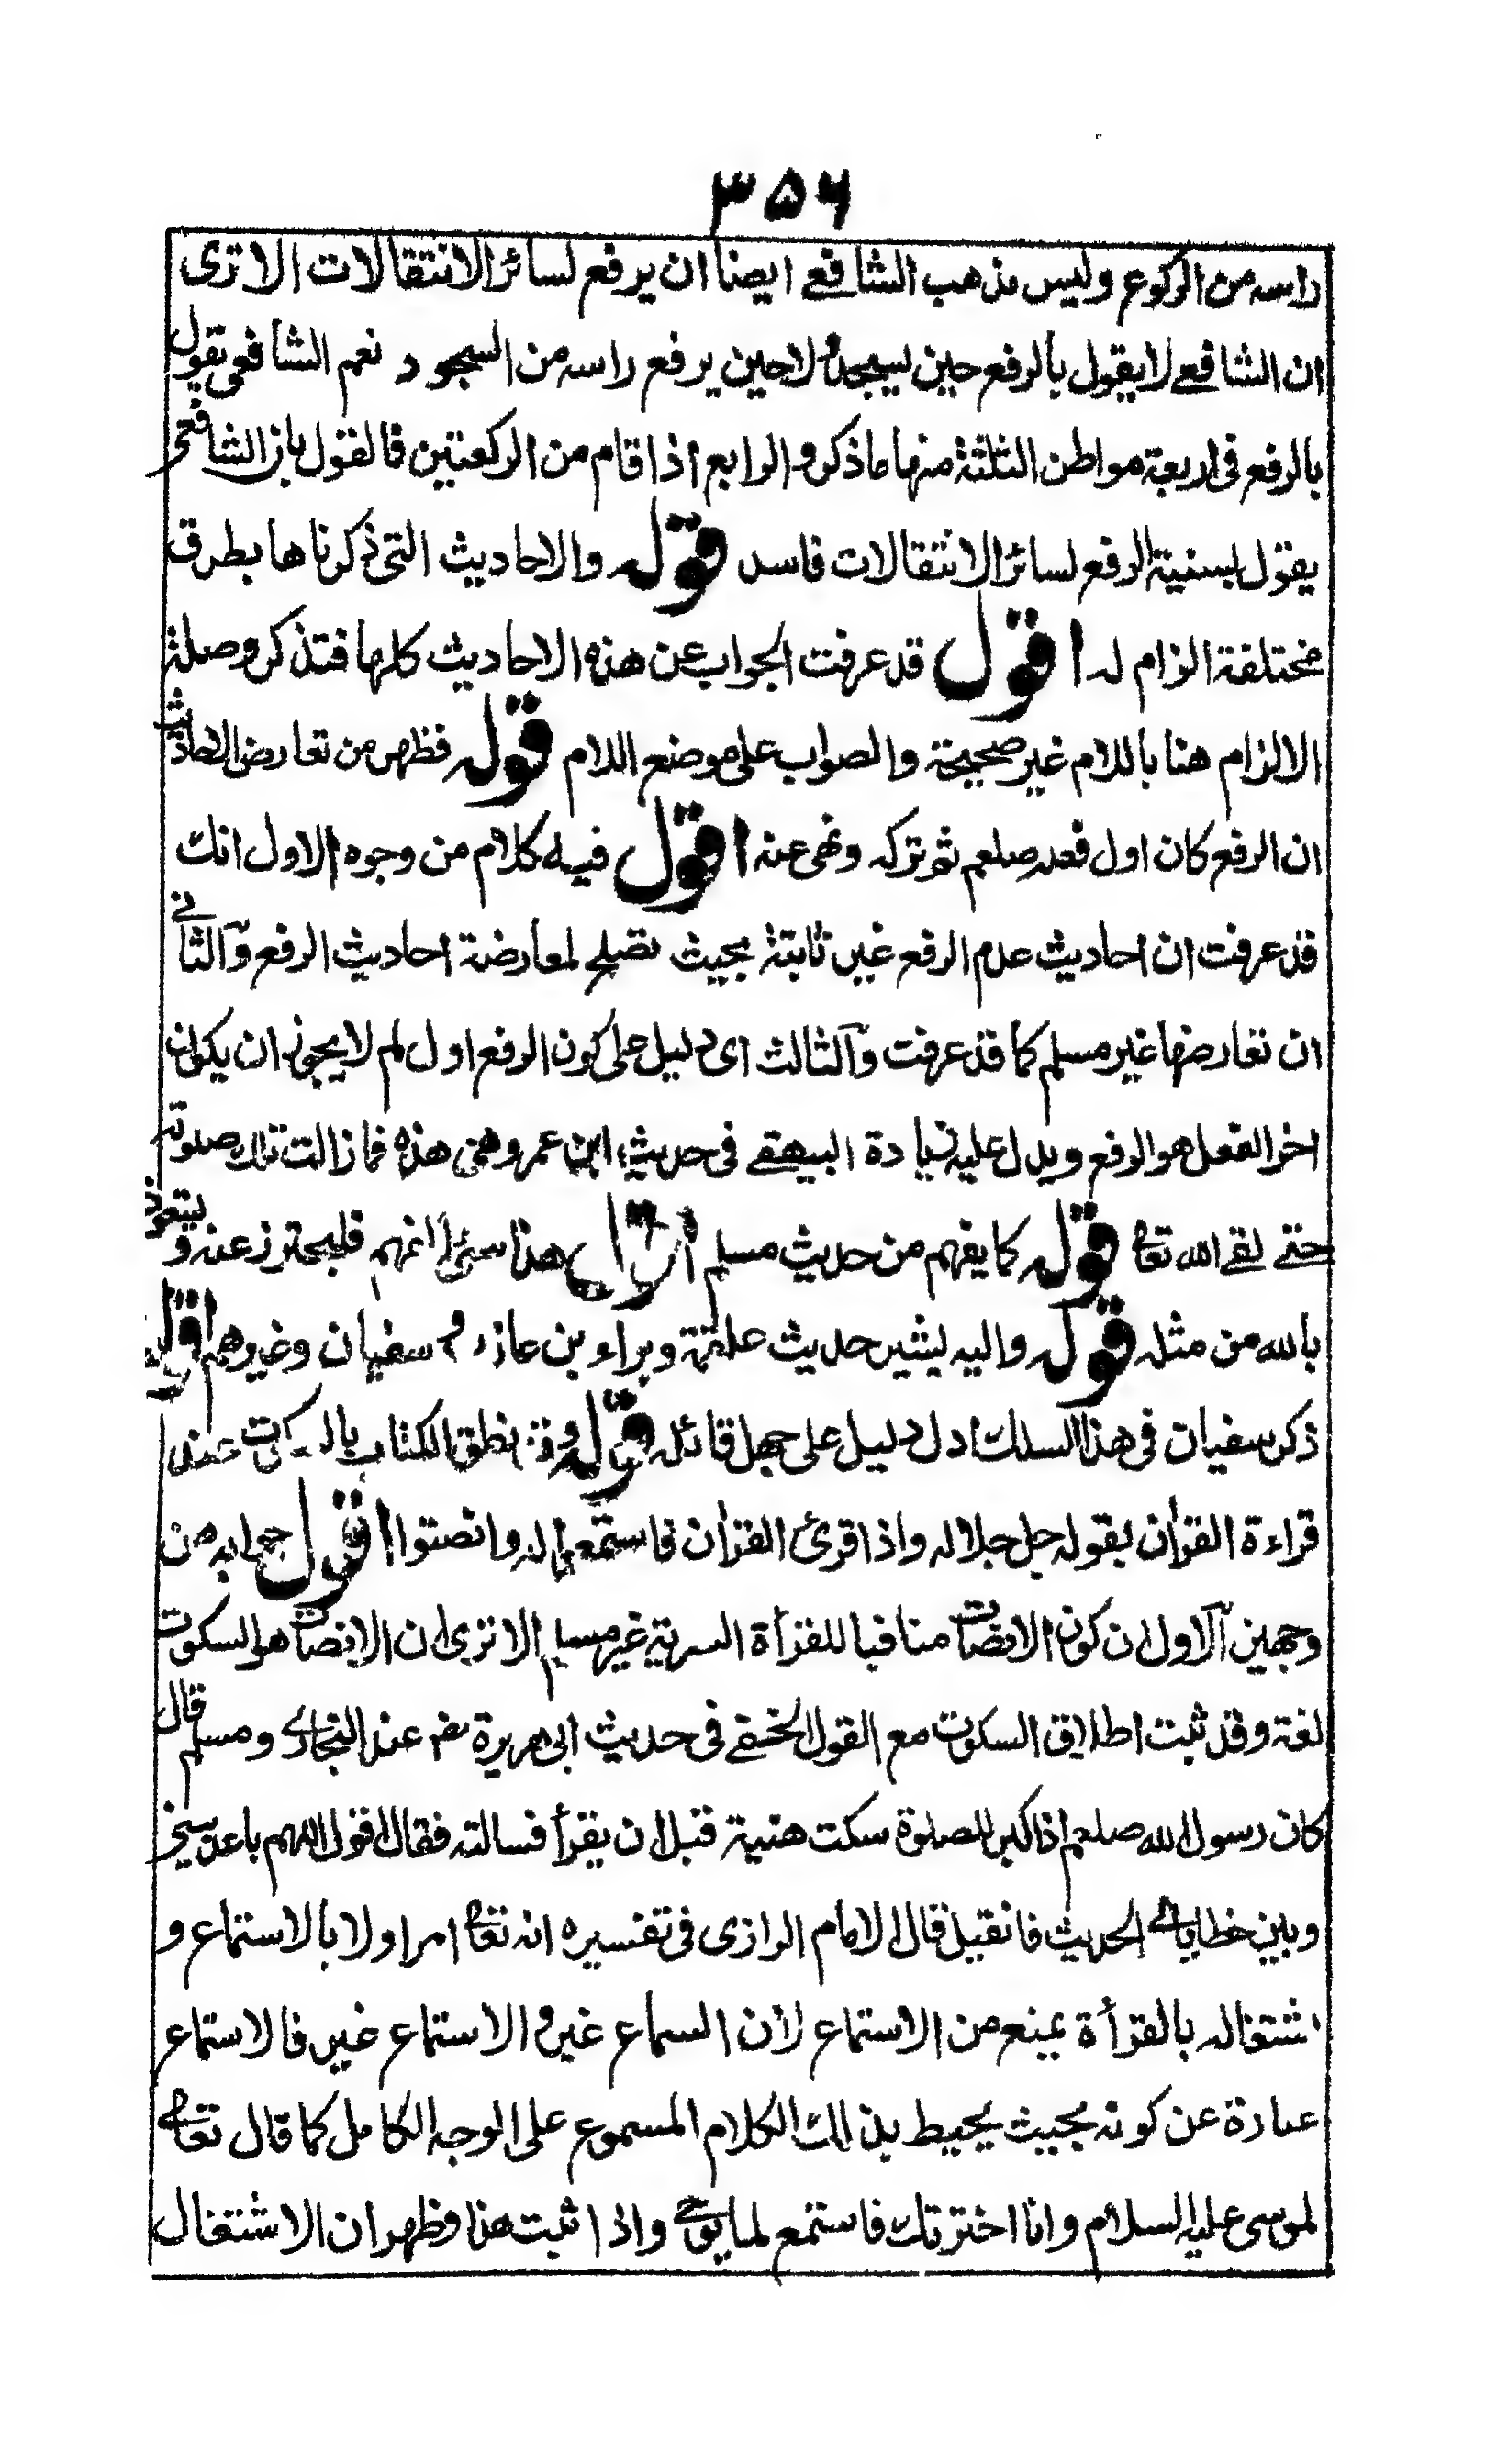 ٣٥٦
راسه من الركوع وليس مذهب الشافعے ايضا ان يرفع لسائر الانتقالات الا ترى
ان الشافعے لا يقول بالرفع حين يسجد ولا حين يرفع راسه من السجود نعم الشافعى يقول
بالرفع فى اربعة مواطن الثلثة منها ما ذكر و الرابع اذا قام من الركعتين فالقول بان الشافعى
يقول بسنية الرفع لسائر الانتقالات فاسد قوله والاحاديث التى ذكرناها بطرق
مختلفة الزام له اقول قد عرفت الجواب عن هذه الاحاديث كلها فتذكر وصلة
الالزام هنا باللام غير صحيحة والصواب على موضع اللام قوله فظهر من تعارض الاحاديث
ان الرفع كان اول فعله صلعم ثم تركه ونهى عنه اقول فيه كلام من وجوه الاول انك
قد عرفت ان احاديث عدم الرفع غير ثابتة بحيث تصلح لمعارضة احاديث الرفع والثانے
ان تعارضها غير مسلم كما قد عرفت والثالث اى دليل على كون الرفع اول لم لا يجوز ان يكون
اخر الفعل هو الرفع ويدل عليه زيادة البيهقے فى حديث ابن عمر وهى هذه فما زالت تلك صلوته
حتے لقے الله تعالے قوله كما يفهم من حديث مسلم اقول هذا سئ انهم فليحترز عنه و يتعوذ
بالله من مثله قوله واليه يشير حديث علقمة وبراء بن عازب و سفيان وغيرهم اقول
ذكر سفيان فى هذا السلك ادل دليل على جهل قائله قوله وقد نطق الكتاب بالسكوت عند
قراءة القرآن بقوله جل جلاله واذا قرئ القرآن فاستمعوا له وانصتوا اقول جوابه من
وجهين الاول ان كون الانصات منافيا للقرأة السرية غير مسلم الا ترى ان الانصات هو السكوت
لغة وقد ثبت اطلاق السكوت مع القول الخفے فى حديث ابى هريرة رض عند البخارى ومسلم قال
كان رسول الله صلعم اذا كبر للصلوة سكت هنية قبل ان يقرأ فسالته فقال اقول اللهم باعد بينى
وبين خطاياى الحديث فان قيل قال الامام الرازى فى تفسيره انه تعالے امر اولا بالاستماع و
اشتغاله بالقرأة يمنع من الاستماع لان السماع غير و الاستماع غير فالاستماع
عبارة عن كونه بحيث يحيط بذلك الكلام المسموع على الوجه الكامل كما قال تعالے
لموسى عليه السلام وانا اخترتك فاستمع لما يوحى واذا ثبت هذا وظهر ان الاشتغال